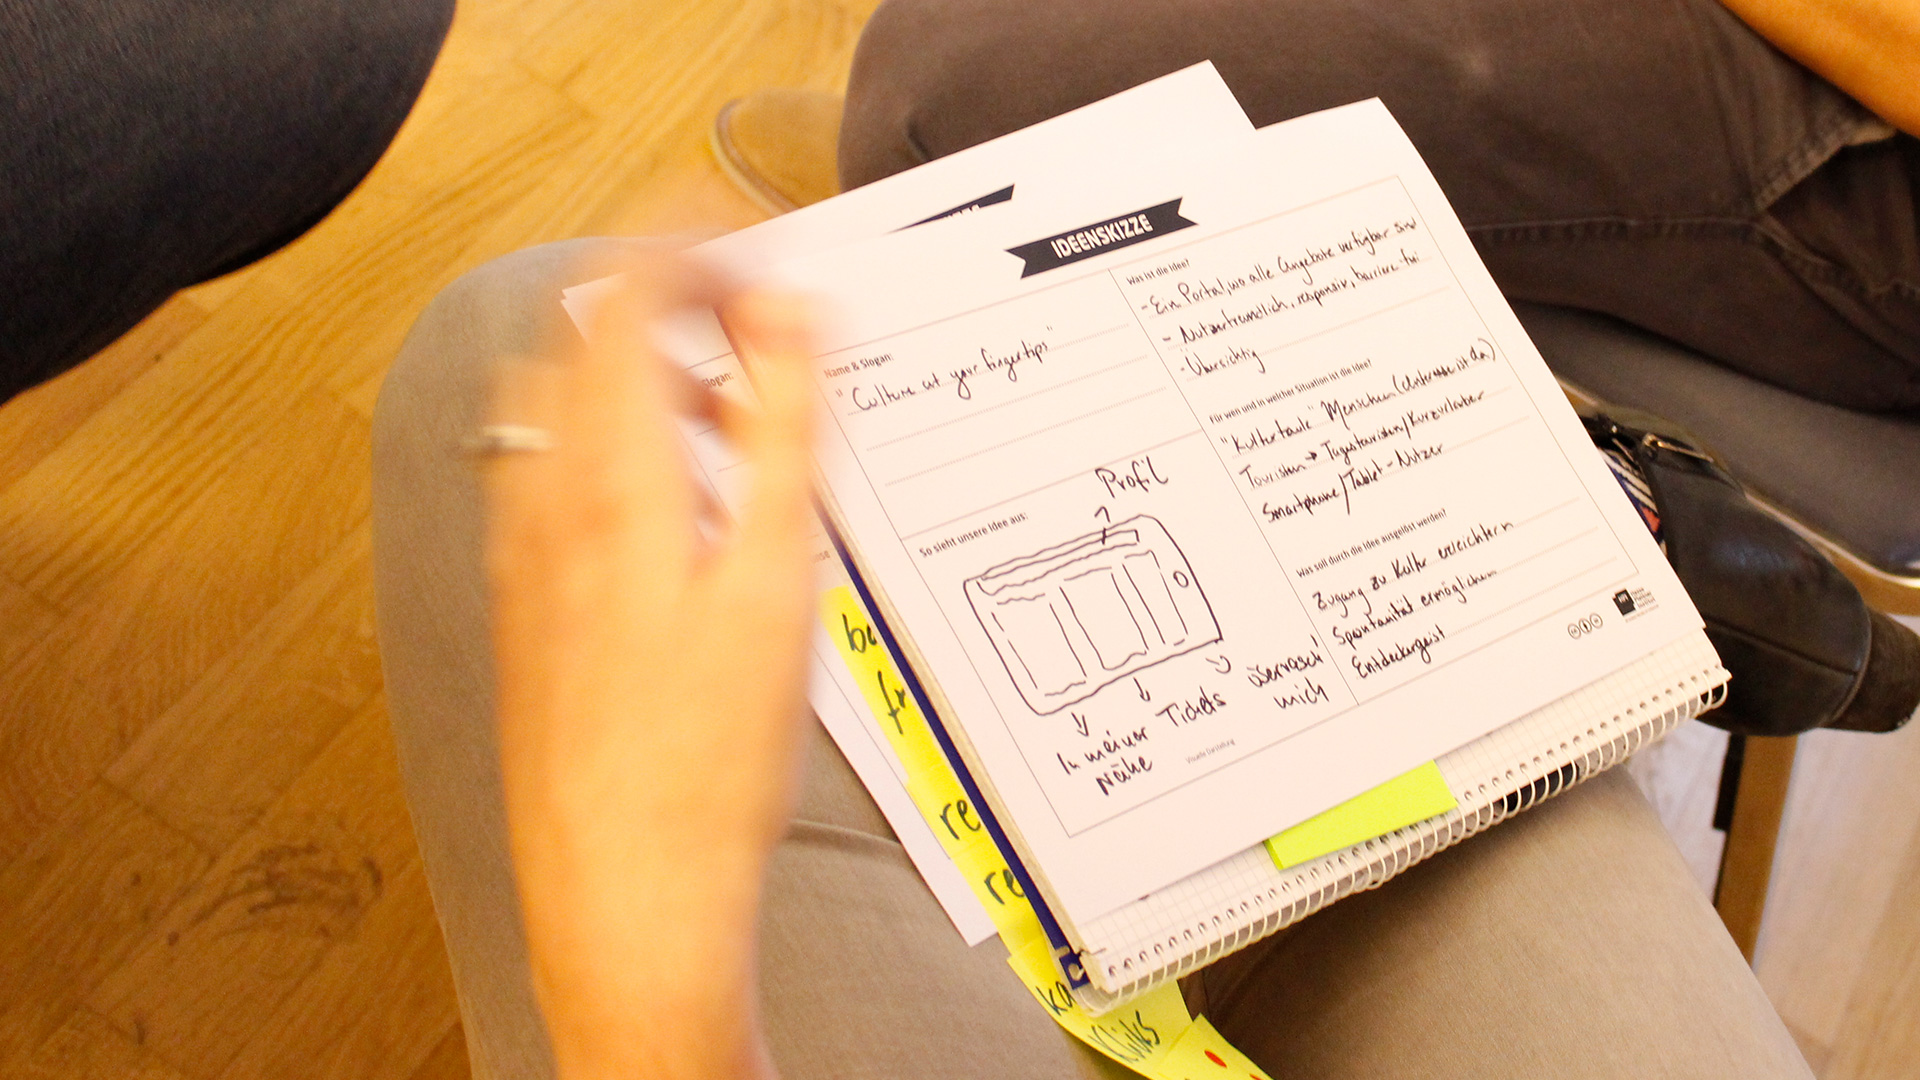 IDEENSKIZZE
Name & Slogan:
"Culture at your fingertips"
So sieht unsere Idee aus:
Profil
In meiner
Nähe
Tickets
überrasch
mich
Visuelle Darstellung
Was ist die Idee?
- Ein Portal, wo alle Angebote verfügbar sind
- Nutzerfreundlich, responsiv, barriere-frei
- Übersichtig
Für wen und in welcher Situation ist die Idee?
"Kulturfaule" Menschen (Interesse ist da)
Touristen → Tagestouristen/Kurzurlauber
Smartphone/Tablet-Nutzer
Was soll durch die Idee ausgelöst werden?
Zugang zu Kultur erleichtern
Spontanität ermöglichen
Entdeckergeist
Slogan:
be
fr
re
re
ka
Kliks